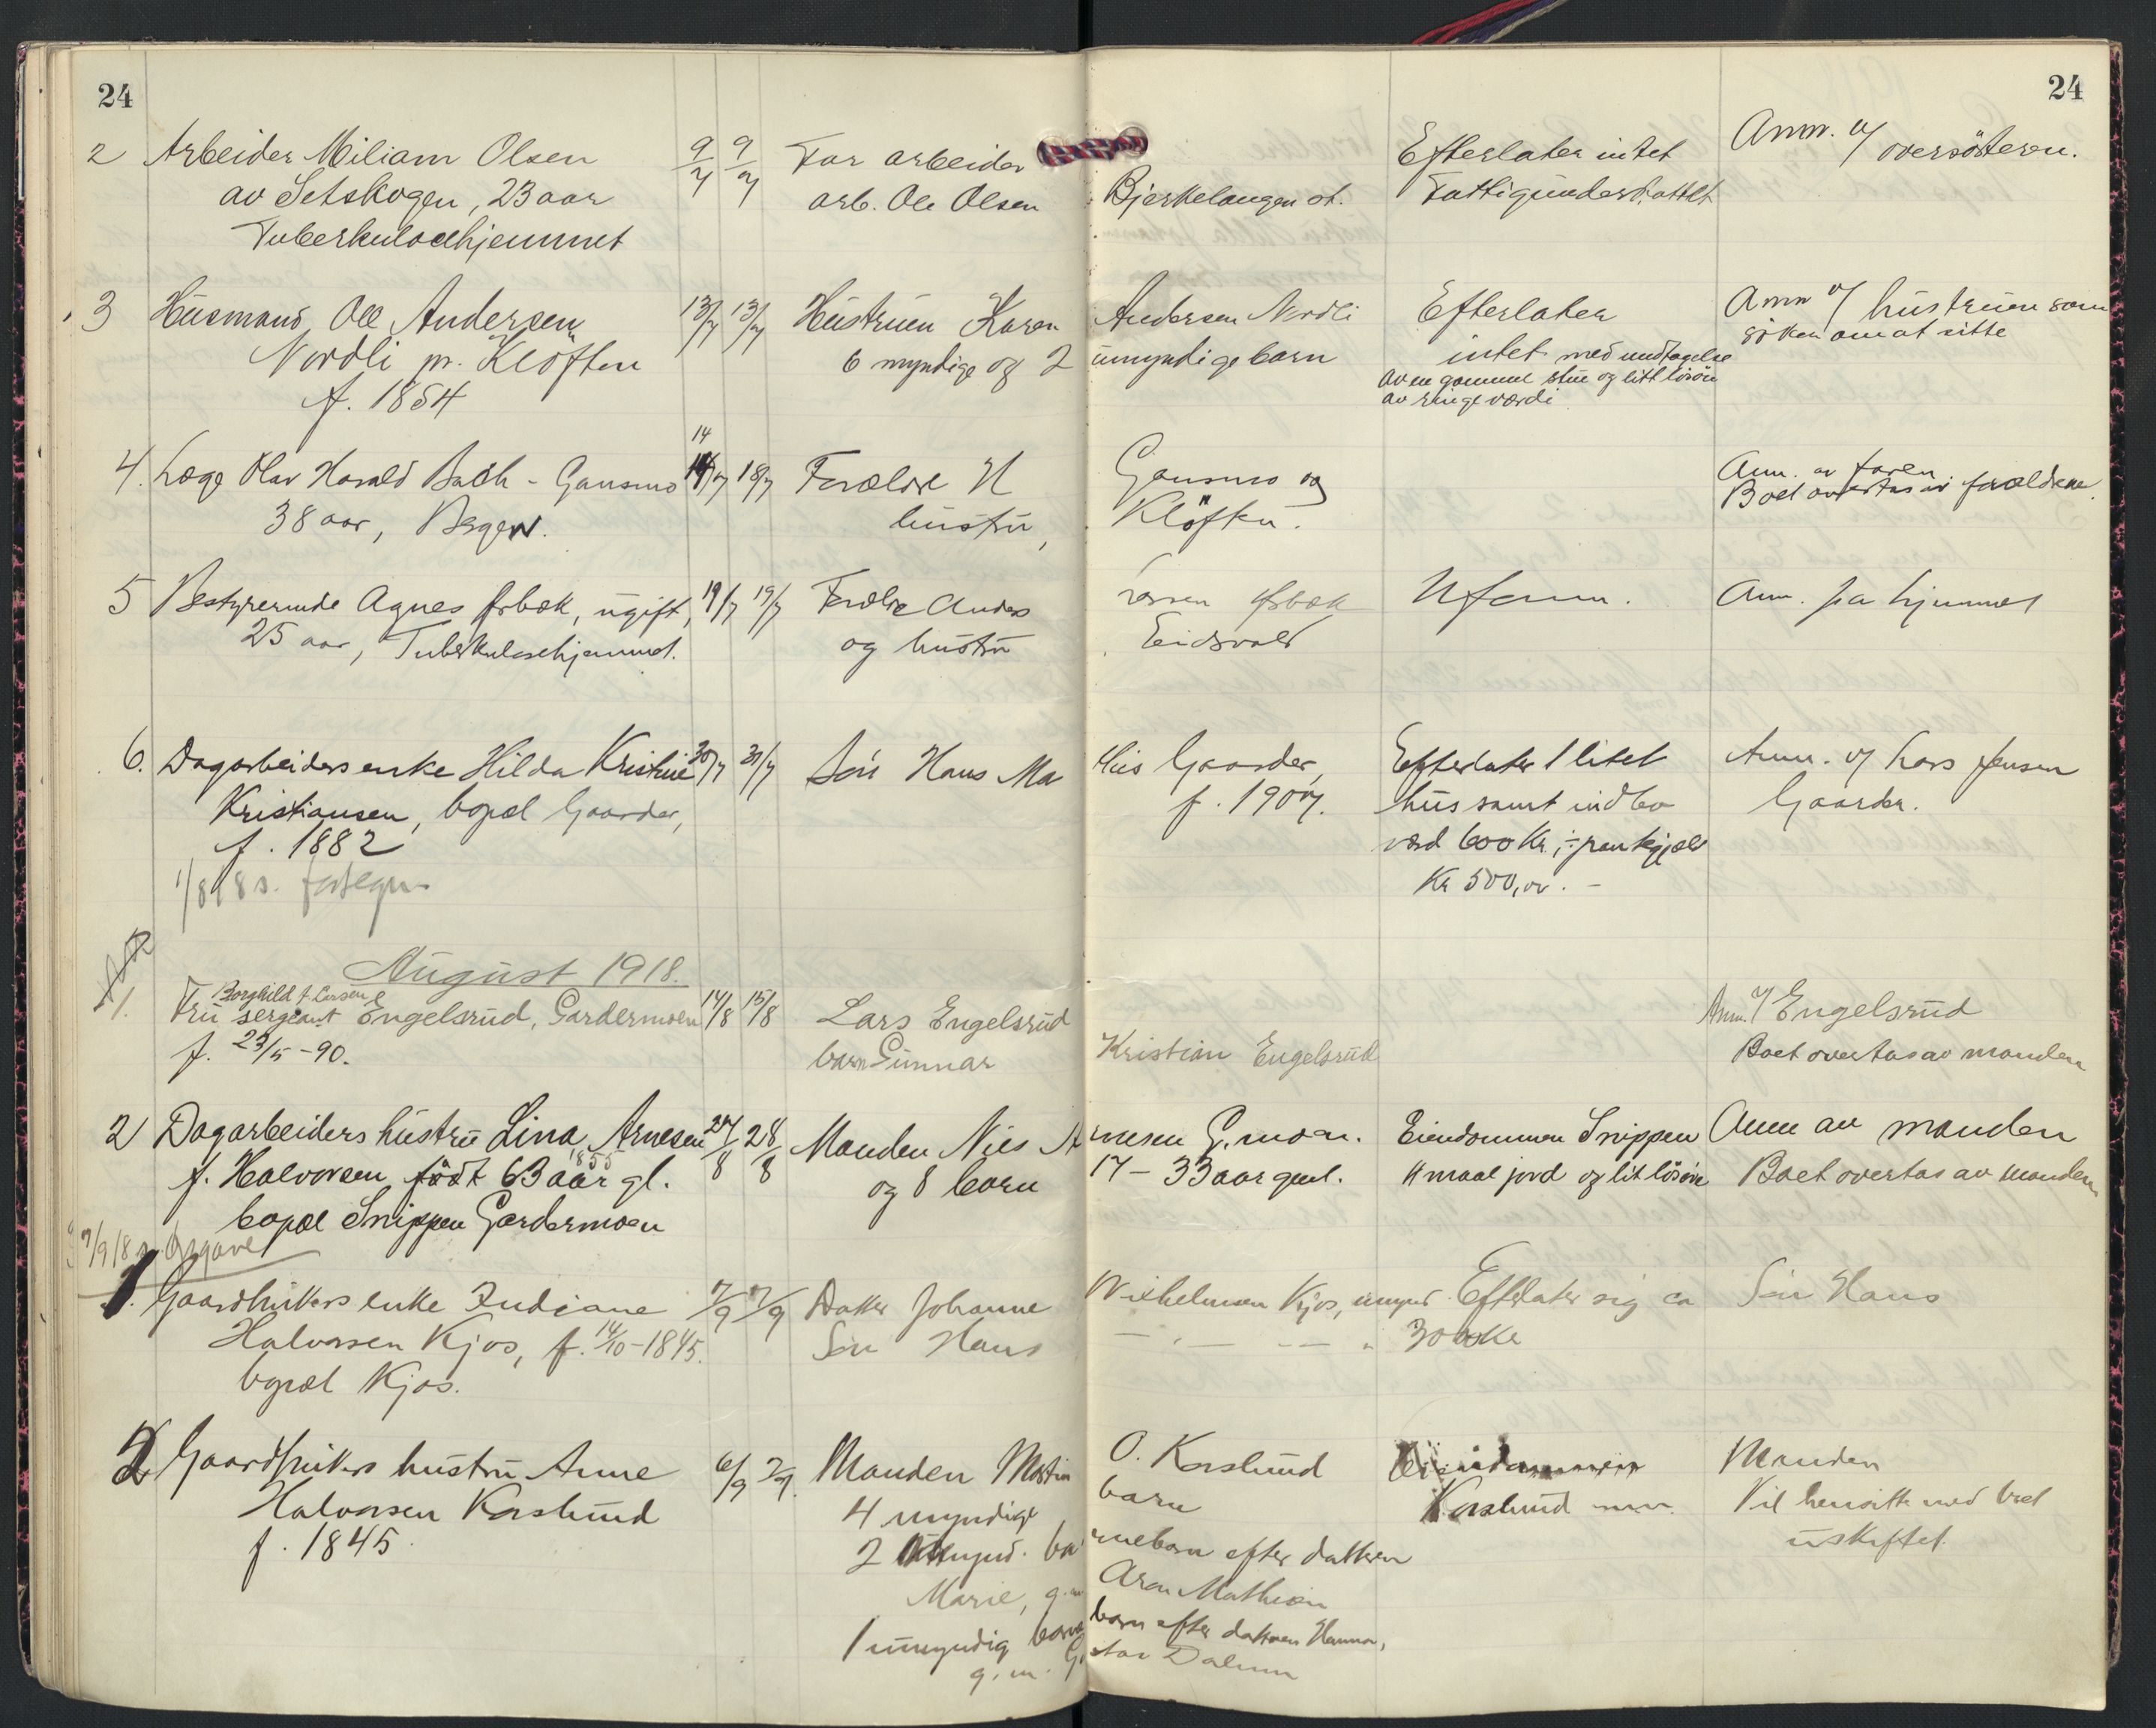 24
24
2 Arbeider Miliam Olsen 9/7 9/7 Far arbeider Efterlater intet Anm. v/ oversøsteren.
av Setskogen, 23 aar arb. Ole Olsen Bjerkelangen st. Fattigunderstøttet
Tuberkulosehjemmet
3 Husmand Ole Andersen 13/7 13/7 Hustruen Karen Andersen Nordli Efterlater Anm v/ hustruen som
Nordli pr. Kløften 6 myndige og 2 umyndige barn intet med undtagelse søker om at sitte
f. 1854 av en gammel stue og litt løsøre
av ringe værdi
14
4. Læge Olav Harald Bach-Gansmo 18/7 Forældre H Gansmo og Anm. av faren
38 aar, Bergen. hustru, Kløften. Boet overtas av forældrene.
5 Bestyrerinde Agnes ugift, 19/7 19/7 Forældre Anders Anm. fra hjemmet
25 aar, Tuberkulosehjemmet. og hustru Eidsvold
6. Dagarbeiders enke Hilda Kristine 30/7 31/7 Søn Hans Mathis Gaarder, Efterlater 1 litet Anm. v/ Lars Jensen
Kristiansen, bopæl Gaarder, f. 1907. hus samt indbo Gaarder.
f. 1882 værd 600 Kr. ÷ pantegjæld
1/8 18 s. Kr 500,00. -
August 1918.
Borghild f. Larsen
1. Fru sergeant Engelsrud, Gardermoen 14/8 15/8 Lars Engelsrud Anm. v/ Engelsrud
f. 23/5-90. barn Gunnar Kristian Engelsrud Boet overtas av manden
2 Dagarbeiders hustru Lina Arnesen 27/8 28/8 Manden Nils Arnesen G.moen. Eiendommen Snippen Anm av manden
1855
f. Halvorsen født 63 aar gl. og 8 barn 17 - 33 aar gml. 4 maal jord og lit løsøre Boet overtas av manden
bopæl Snippen Gardermoen
3/9 18 s. Opgave
1. Gaardbrukers enke Indiane 7/9 7/9 Datter Johanne Wilhelmsen Kjos, Efterlater sig ca Søn Hans
Halvorsen Kjos, f. 14/10-1845. Søn Hans 3000 Kr
bopæl Kjos.
2 Gaardbrukers hustru Anne 6/9 7/9. Manden Martin O. Korslund Eiendommen Manden
Halvorsen Korslund 4 myndige barn Korslund Vil hensitte med boet
f. 1845. 2 umynd. barnebarn efter datteren uskiftet.
Marie, g.m. Aron Mathisen
1 umyndig barnebarn efter datteren Hanna,
g.m. Gustav Dalum